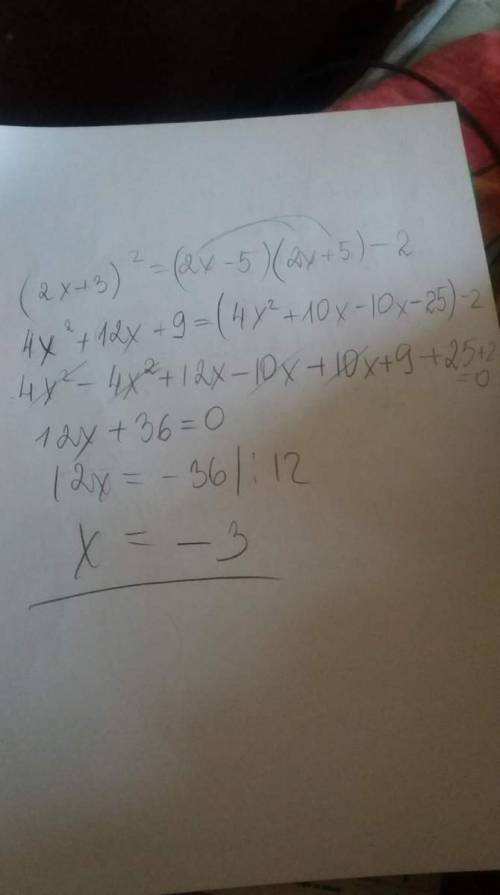 (2x+3)² = (2x-5)(2x+5)-2
4x² + 12x + 9 = (4x² + 10x - 10x - 25) - 2
4x² - 4x² + 12x - 10x + 10x + 9 + 25 + 2 = 0
12x + 36 = 0
12x = - 36 | : 12
x = - 3